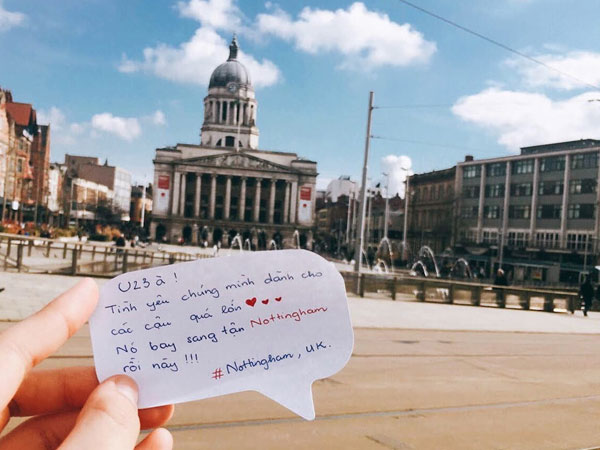 U23 à !
Tình yêu chúng mình dành cho
các cậu quá lớn
Nó bay sang tận Nottingham
rồi này !!!
#Nottingham, UK.